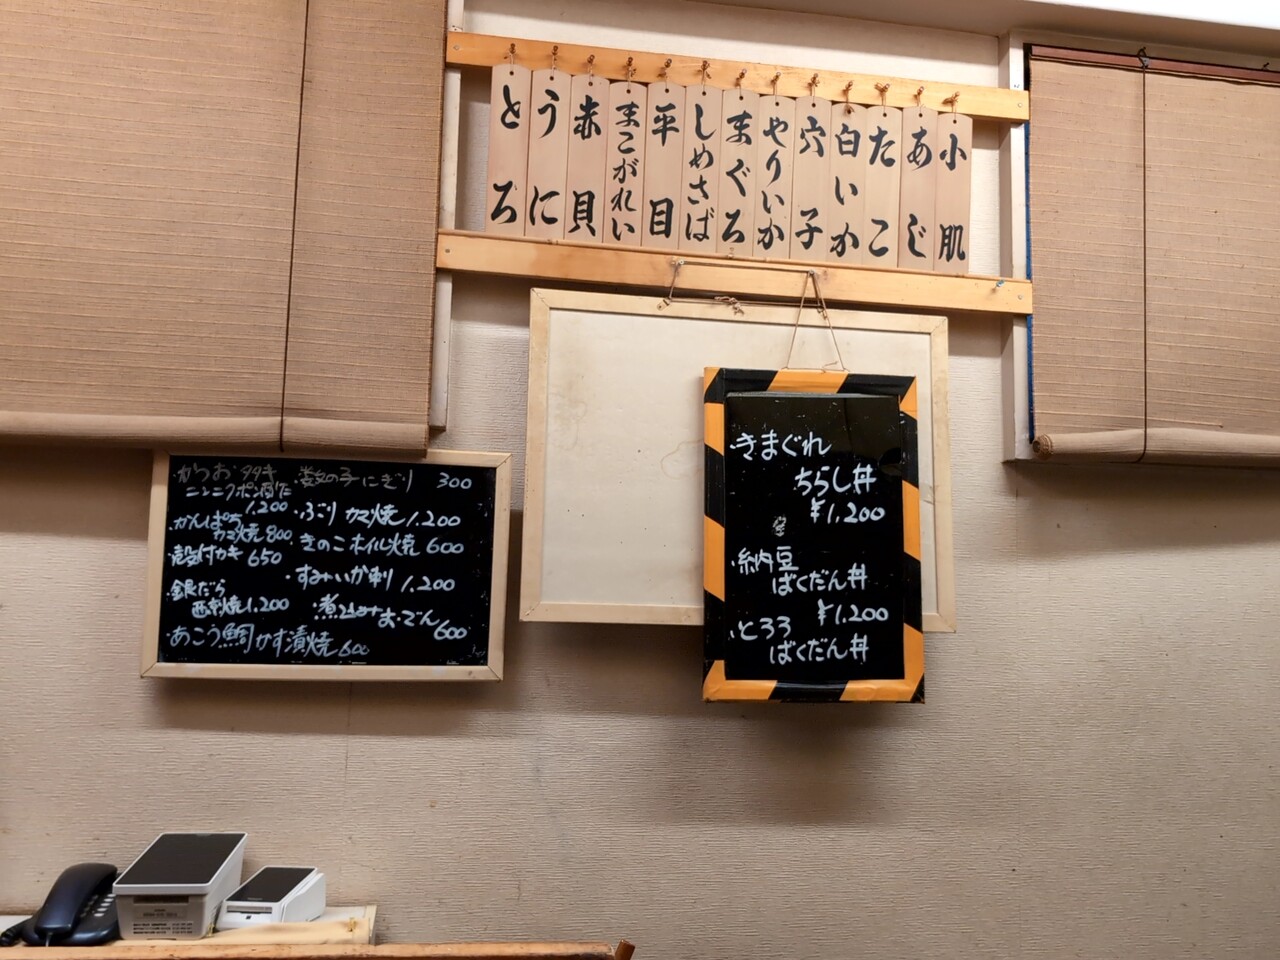 とろ
うに
赤貝
まこがれい
平目
しめさば
まぐろ
やりいか
穴子
白いか
たこ
あじ
小肌
・かつおタタキ
ニンニクポン酢だ
1,200
・かんぱち
カマ焼 800
・殻付カキ 650
・銀だら
西京焼 1,200
・あこう鯛かす漬焼 600
・数の子にぎり 300
・ぶりカマ焼 1,200
・きのこホイル焼 600
・すみいか刺 1,200
・煮込みおでん
600
・きまぐれ
ちらし丼
¥1,200
・納豆
ばくだん丼
¥1,200
・とろろ
ばくだん丼